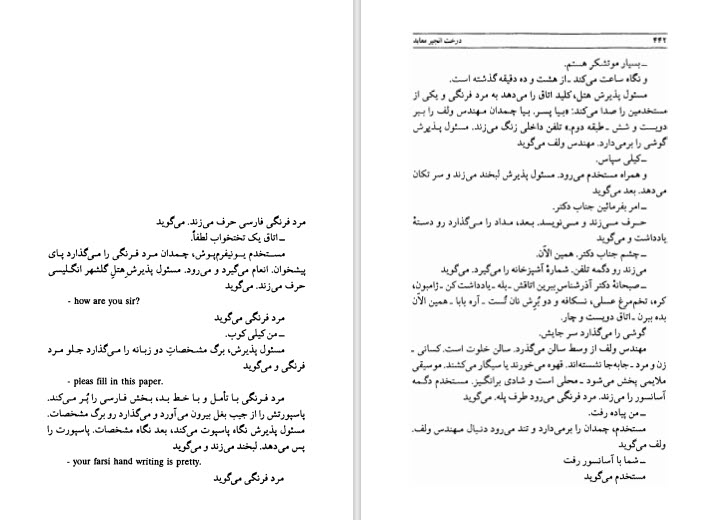 ۴۴۲ درخت انجیر معابد
ـ بسیار موتشکر هستم.
و نگاه ساعت می‌کند ـ از هشت و ده دقیقه گذشته است.
مسئول پذیرش هتل، کلید اتاق را می‌دهد به مرد فرنگی و یکی از
مستخدمین را صدا می‌کند: «بیا پسر. بیا چمدان مهندس ولف را ببر
دویست و شش ـ طبقه دوم.» تلفن داخلی زنگ می‌زند. مسئول پذیرش
گوشی را برمی‌دارد. مهندس ولف می‌گوید
ـ کیلی سپاس.
و همراه مستخدم می‌رود. مسئول پذیرش لبخند می‌زند و سر تکان
می‌دهد. بعد می‌گوید
ـ امر بفرمائین جناب دکتر.
حرف می‌زند و می‌نویسد. بعد، مداد را می‌گذارد رو دستهٔ
یادداشت و می‌گوید
ـ چشم جناب دکتر. همین الآن.
می‌زند رو دگمه تلفن. شمارهٔ آشپزخانه را می‌گیرد. می‌گوید
ـ صبحانهٔ دکتر آذرشناس ببرین اتاقش ـ بله ـ یادداشت کن ـ ژامبون،
کره، تخم‌مرغ عسلی، نسکافه و دو بُرِش نان تُست ـ آره بابا ـ همین الآن
بده ببرن ـ اتاق دویست و چار.
گوشی را می‌گذارد سر جایش.
مهندس ولف از وسط سالن می‌گذرد. سالن خلوت است. کسانی ـ
زن و مرد ـ جابه‌جا نشسته‌اند. قهوه می‌خورند یا سیگار می‌کشند. موسیقی
ملایمی پخش می‌شود ـ محلی است و شادی برانگیز. مستخدم دگمه
آسانسور را می‌زند. مرد فرنگی می‌رود طرف پله. می‌گوید
ـ من پیاده رفت.
مستخدم، چمدان را برمی‌دارد و تند می‌رود دنبال مهندس ولف.
ولف می‌گوید
ـ شما با آسانسور رفت
مستخدم می‌گوید
مرد فرنگی فارسی حرف می‌زند. می‌گوید
ـ اتاق یک تختخواب لطفاً.
مستخدم یونیفرم‌پوش، چمدان مرد فرنگی را می‌گذارد پای
پیشخوان. انعام می‌گیرد و می‌رود. مسئول پذیرشِ هتلِ گلشهر انگلیسی
حرف می‌زند. می‌گوید
- how are you sir?
مرد فرنگی می‌گوید
ـ من کیلی کوب.
مسئول پذیرش، برگ مشخصاتِ دو زبانه را می‌گذارد جلو مرد
فرنگی و می‌گوید
- pleas fill in this paper.
مرد فرنگی با تأمل و با خط بد، بخش فارسی را پُر می‌کند.
پاسپورتش را از جیب بغل بیرون می‌آورد و می‌گذارد رو برگ مشخصات.
مسئول پذیرش نگاه پاسپوت می‌کند، بعد نگاه مشخصات. پاسپورت را
پس می‌دهد. لبخند می‌زند و می‌گوید
- your farsi hand writing is pretty.
مرد فرنگی می‌گوید